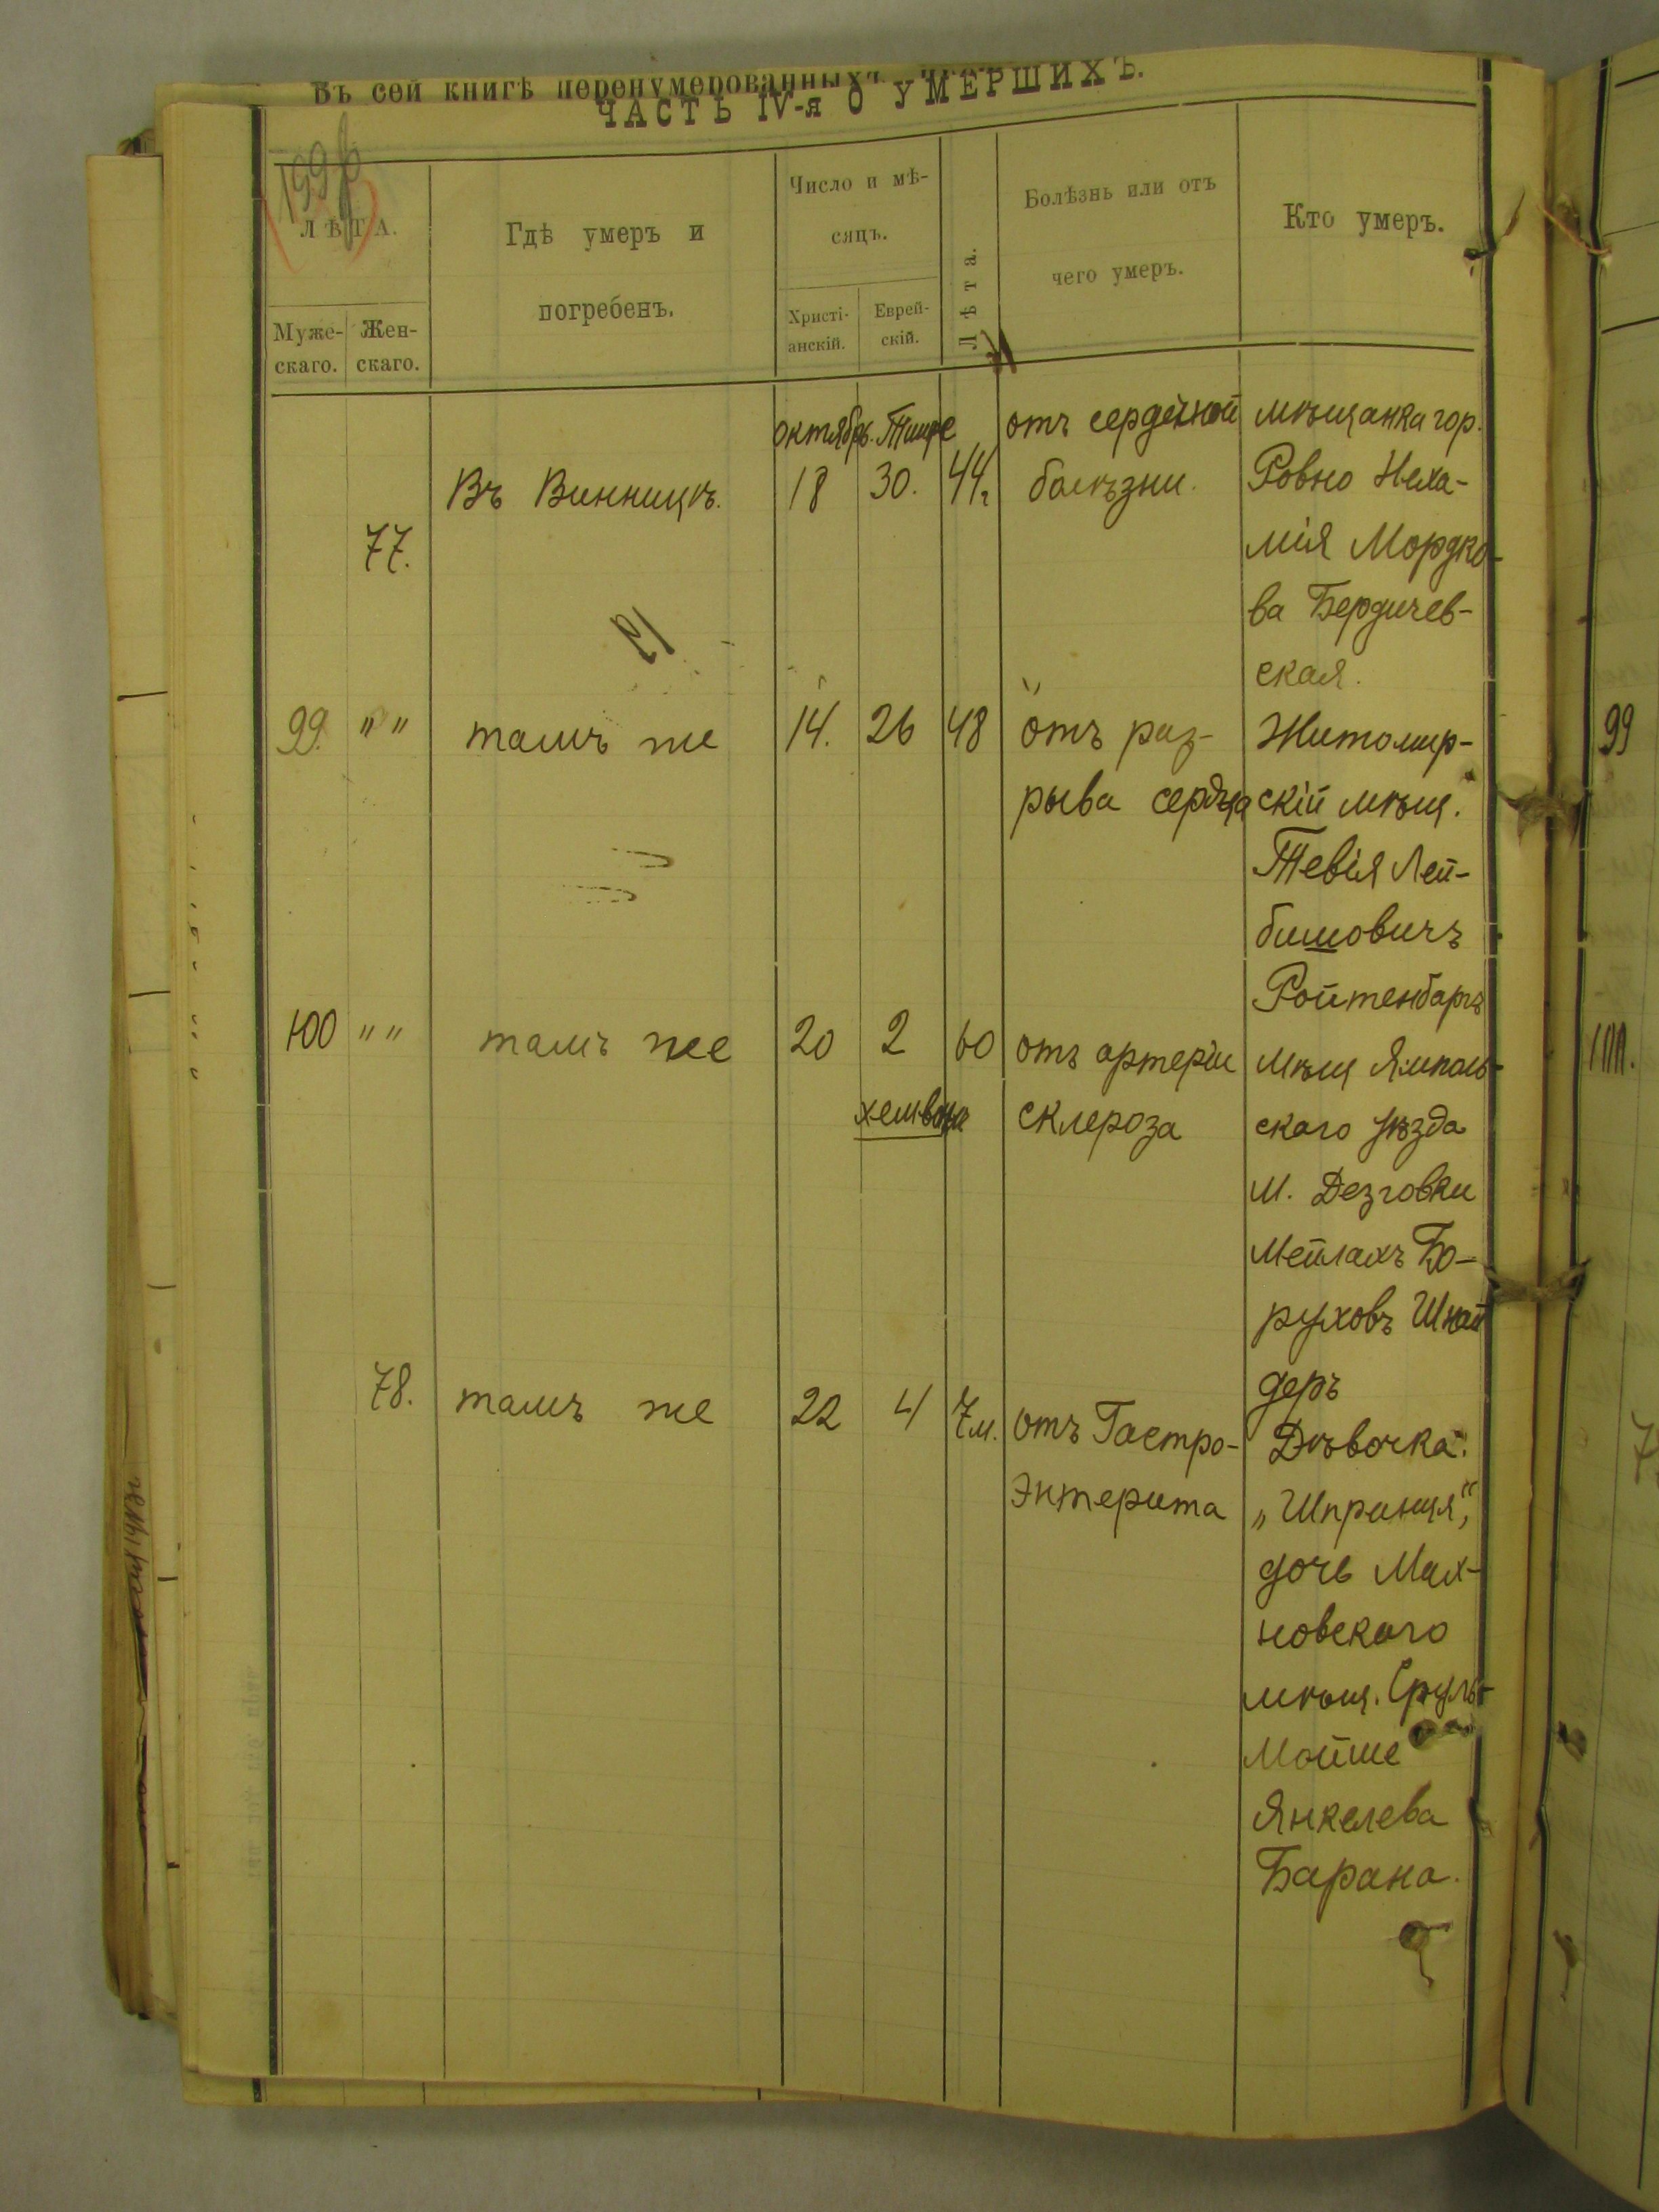 Въ сей книгѣ перенумерованныхъ
ЧАСТЬ IV-я О УМЕРШИХЪ.
ЛѢТА.
Муже-
скаго.
Жен-
скаго.
Гдѣ умеръ и
погребенъ.
Число и мѣ-
сяцъ.
Христі-
анскій.
Еврей-
скій.
Лѣта.
Болѣзнь или отъ
чего умеръ.
Кто умеръ.
77.
Въ Винницѣ.
октябрь. Тишре
18 30. 44
отъ сердечной
болѣзни.
мѣщанка гор.
Ровно Неха-
мія Мордко-
ва Бердичев-
ская.
99. " "
тамъ же
14. 26 48
отъ раз-
рыва сердца
Житомир-
скій мѣщ.
Тевія Лей-
бишовичъ
Ройтенбаргъ
100 " "
тамъ же
20 2 60
хешвонъ
отъ артеріи
склероза
мѣщ Ямполь-
скаго уѣзда
м. Дезговки
Мейлахъ Бо-
руховъ Шнай
деръ
78.
тамъ же
22 4 7 м.
отъ Гастро-
Энтерита
Дѣвочка:
„Шпринця",
дочь Мах-
новскаго
мѣщ. Сруль-
Мойше
Янкелева
Барана.
99